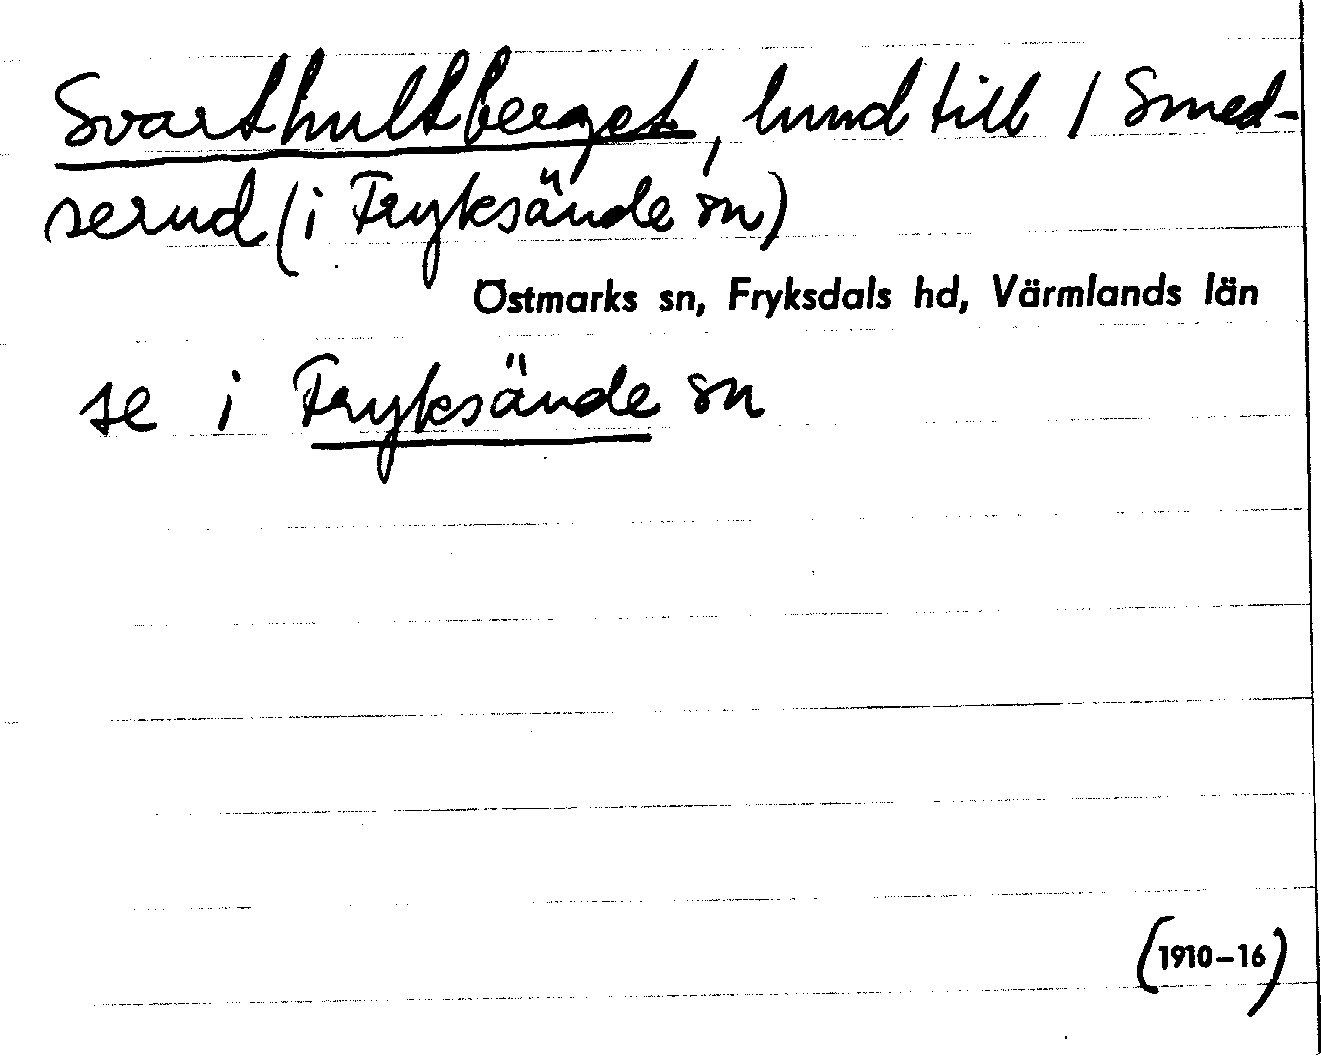 Svarthultberget, lund till 1 Smed-
serud (i Fryksände sn)
Östmarks sn, Fryksdals hd, Värmlands län
se i Fryksände sn
(1910–16)